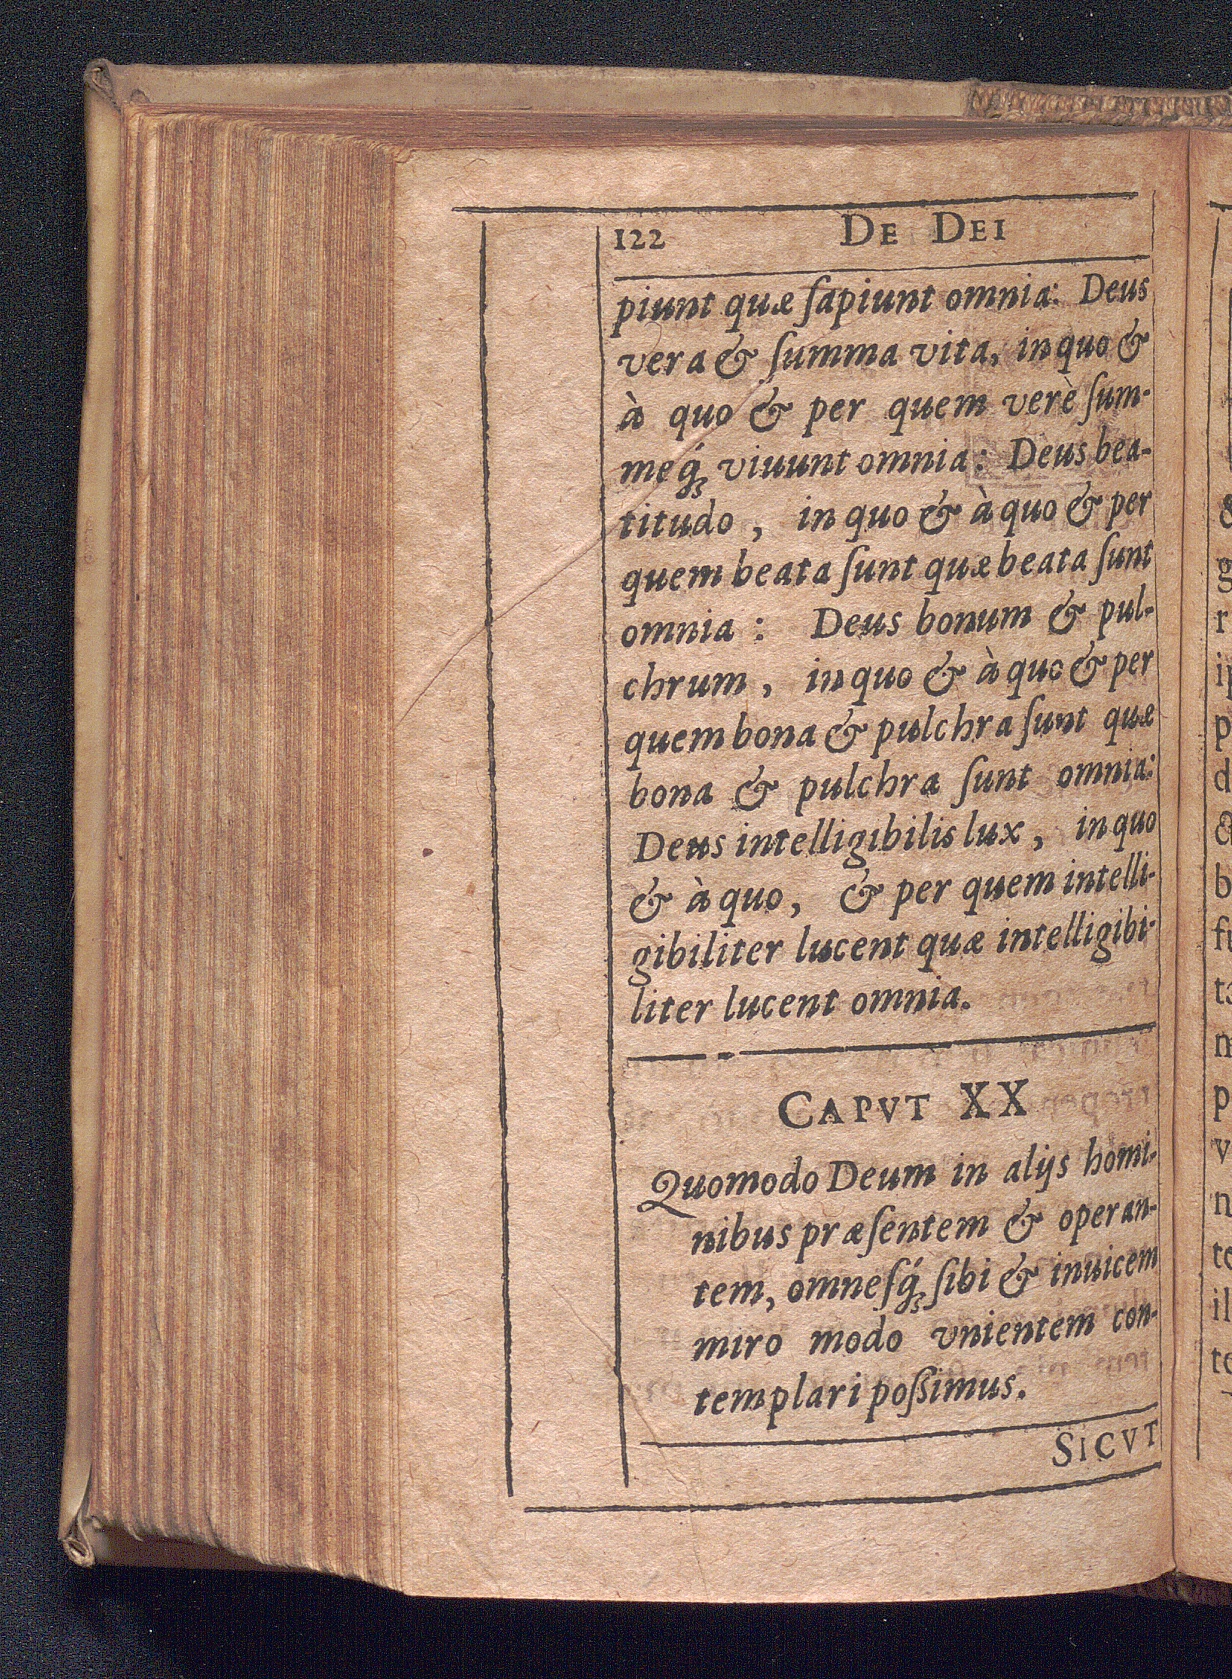 122 DE DEI
piunt quæ ſapiunt omnia: Deus
vera & ſumma vita, in quo &
à quo & per quem verè ſum-
meq́; viuunt omnia: Deus bea-
titudo, in quo & à quo & per
quem beata ſunt quæ beata ſunt
omnia: Deus bonum & pul-
chrum, in quo & à quo & per
quem bona & pulchra ſunt quæ
bona & pulchra ſunt omnia:
Deus intelligibilis lux, in quo
& à quo, & per quem intelli-
gibiliter lucent quæ intelligibi-
liter lucent omnia.
CAPVT XX
Quomodo Deum in alijs homi-
nibus præſentem & operan-
tem, omneſq́; ſibi & inuicem
miro modo vnientem con-
templari poſſimus.
SICVT